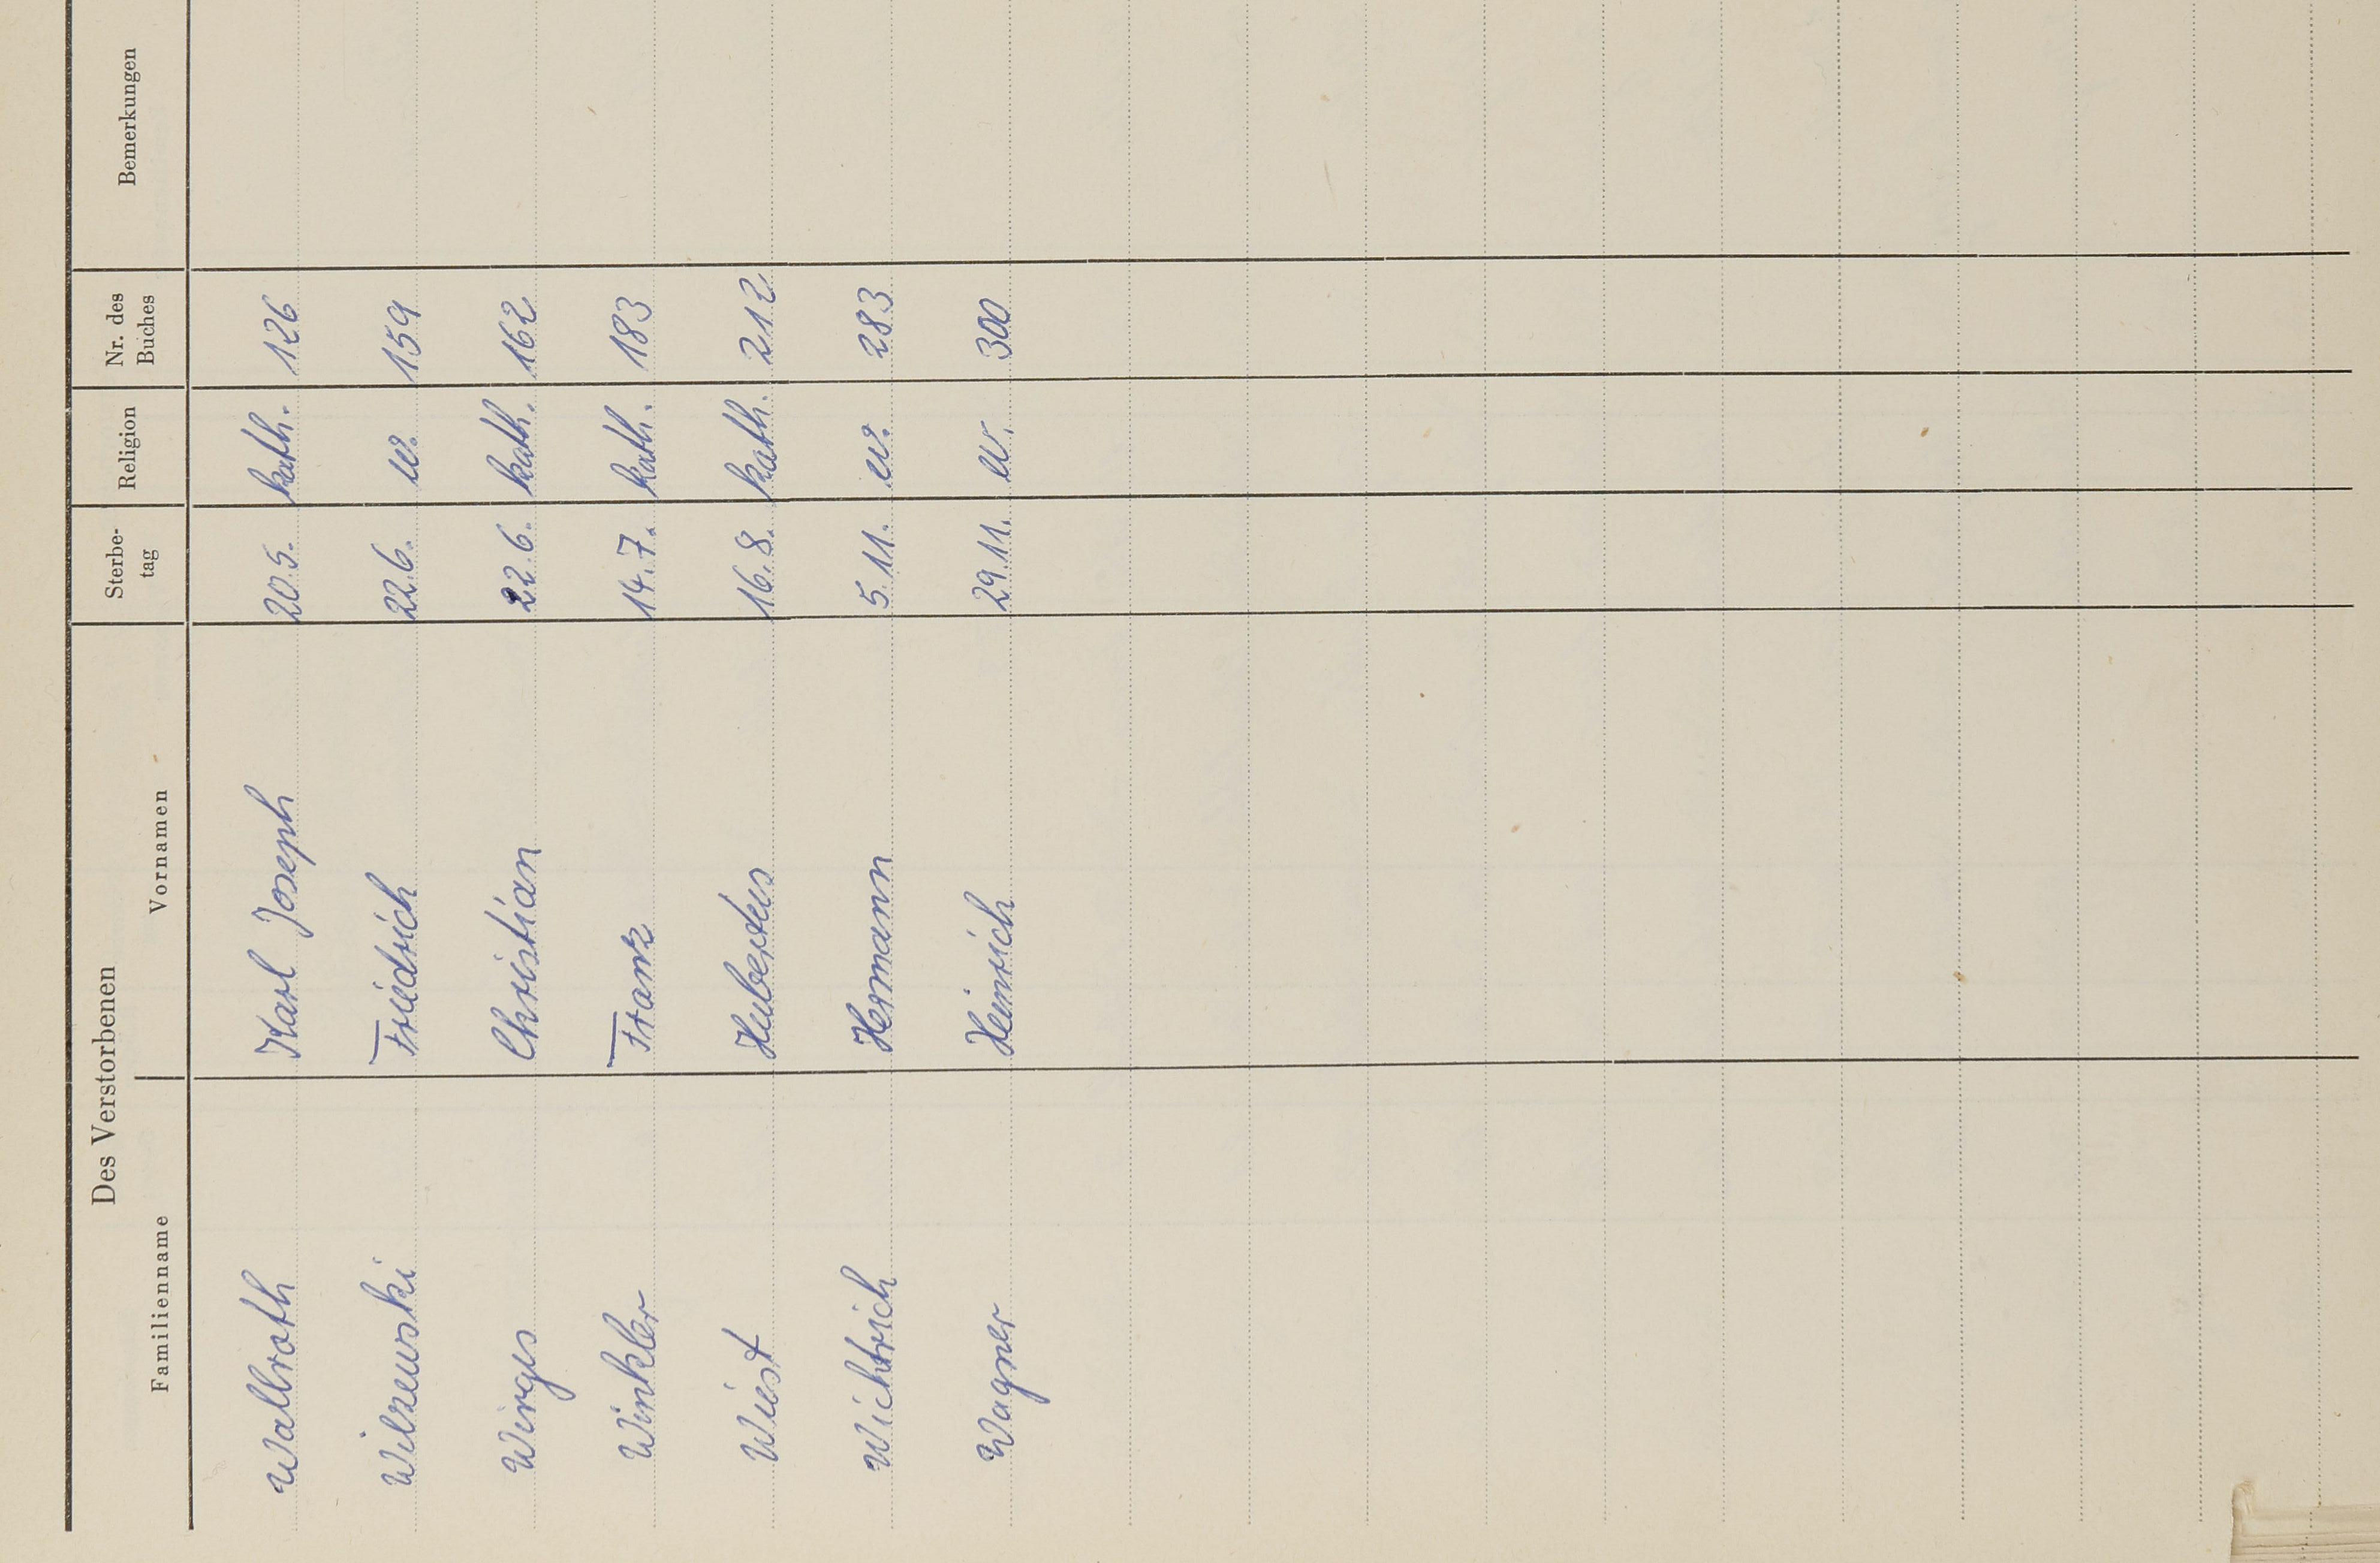 Des Verstorbenen
Familienname Vornamen Sterbe-tag Religion Nr. des Buches Bemerkungen
Wallroth Karl Joseph 20.5. kath. 126
Wilzewski Friedrich 22.6. ev. 159
Wirges Christian 22.6. kath. 162
Winkler Frank 14.7. kath. 183
Wiest Hubertus 16.8. kath. 212
Wichtrich Hermann 5.11. ev. 283
Wagner Heinrich 29.11. ev. 300